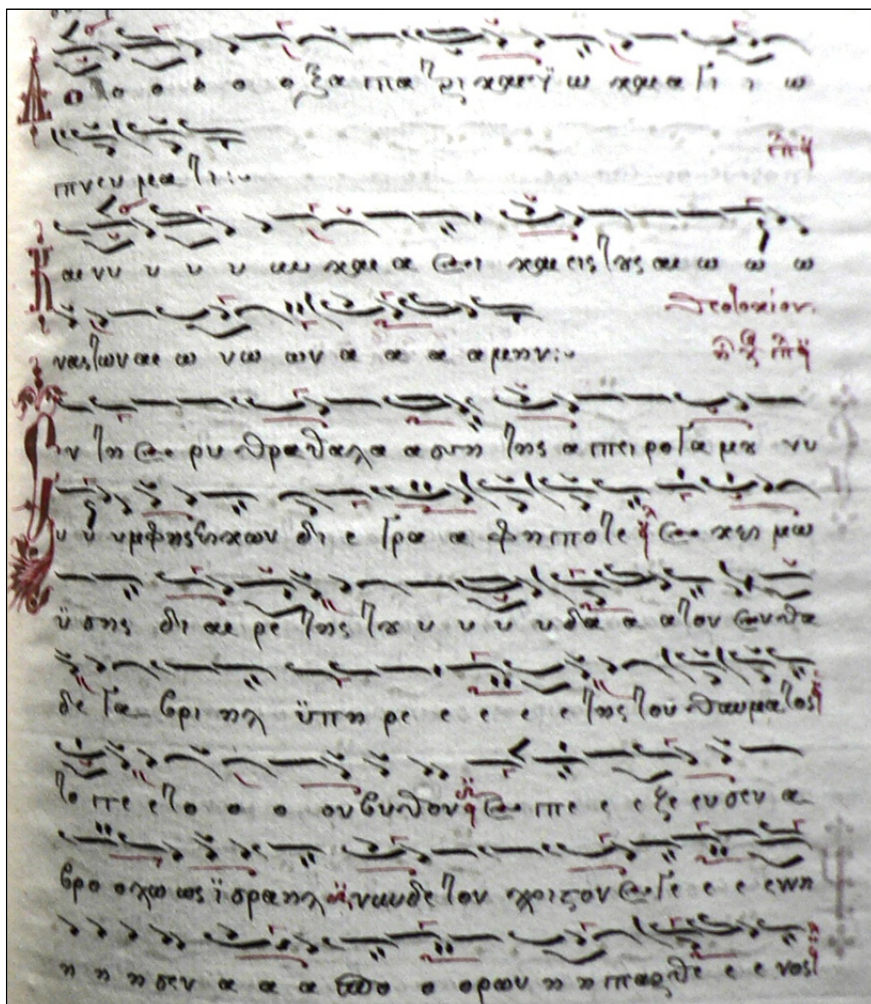 Δο ο ο ο ο ο ξα πα τρι και ϋ ω και α γι ι ω
πνευ μα τι:~
Και νυ υ υ υ υν και α ει και εις τους αι ω ω ω
θεοτοκίον
νας των αι ω νω ων α α α α αμην:~
Εν τη ε ρυ θρα θαλα α σση της α πειρογαμου νυ
υ υ υμφης εικων δι ε γρα α φη ποτε εκει μω
ϋ σης δι αι ρε της του υ υ υ υδα α ατος ενθα
δε γα βρι ηλ ϋπη ρε ε ε ε ε ε της του θαυματος
το τε ε το ο ο ο ον βυθον ε πε ε ε ζε ευσεν α
βρο οχω ως ϊσραηλ νυν δε τον χριστον ε γε ε ε ε ννη
η η η σεν α α α σπο ο ο ορως η η παρθε ε ε νος